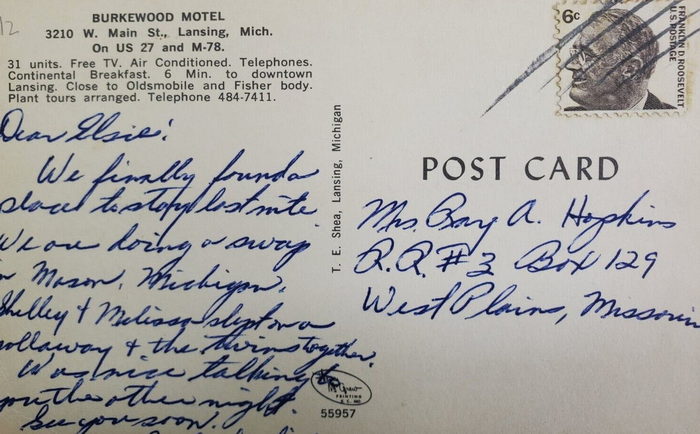 12
BURKEWOOD MOTEL
3210 W. Main St., Lansing, Mich.
On US 27 and M-78.
31 units. Free TV. Air Conditioned. Telephones.
Continental Breakfast. 6 Min. to downtown
Lansing. Close to Oldsmobile and Fisher body.
Plant tours arranged. Telephone 484-7411.
Dear Elsie:
We finally found a
place to stop last nite
We are doing a swap
in Mason, Michigan.
Shelley & Melissa slept on a
rollaway & the twins together.
Was nice talking to
you the other night.
See you soon.
T. E. Shea, Lansing, Michigan
6c
FRANKLIN D. ROOSEVELT
U.S. POSTAGE
POST CARD
Mrs. Ray A. Hopkins
R.R. #3 Box 129
West Plains, Missouri
McGrew
PRINTING
K.C. MO
55957